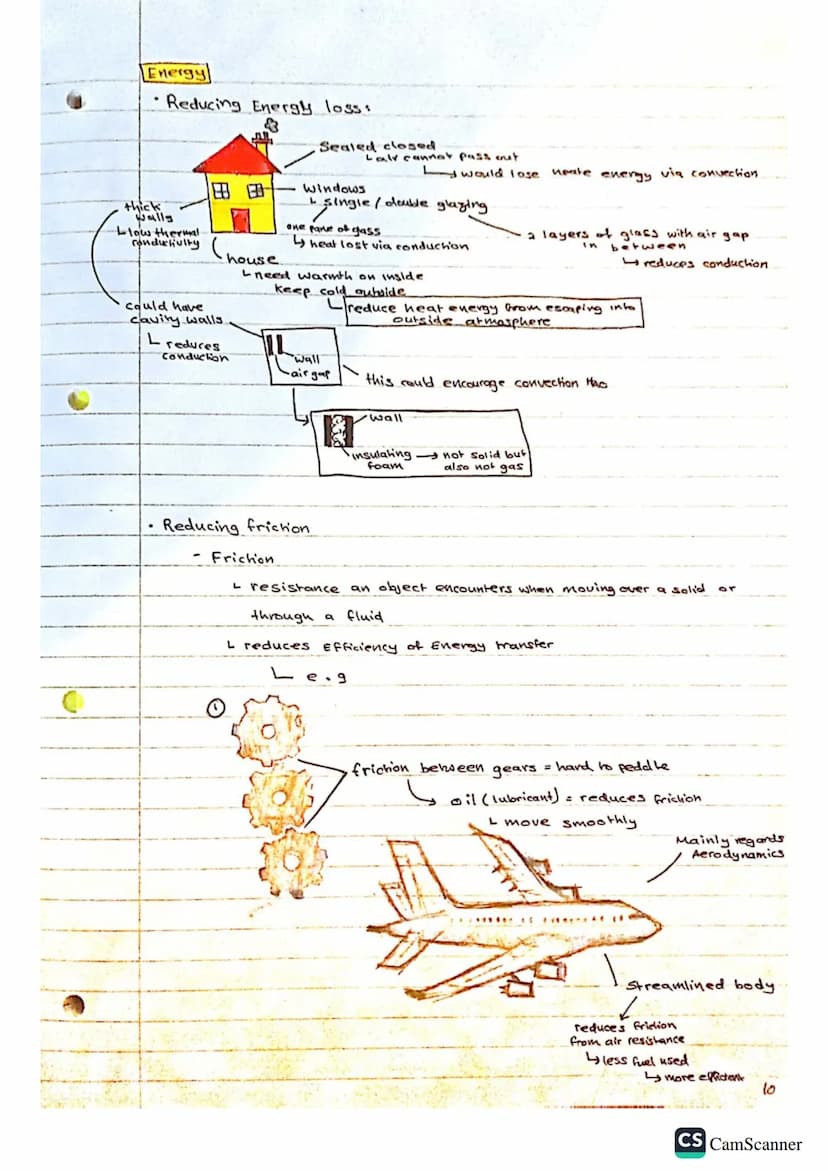 Energy
• Reducing Energy loss:
Sealed closed
↳ air cannot pass out
↳ would lose heate energy via convection
windows
↳ single / double glazing
one pane of glass
↳ heat lost via conduction
2 layers of glass with air gap
in between
↳ reduces conduction
thick
walls
↳ low thermal
conductivity
house
↳ need warmth on inside
keep cold outside
↳ reduce heat energy from escaping into
outside atmosphere
could have
cavity walls
↳ reduces
conduction
wall
air gap
this could encourage convection tho
wall
insulating → not solid but
foam also not gas
• Reducing friction
- Friction
↳ resistance an object encounters when moving over a solid or
through a fluid
↳ reduces Efficiency of Energy transfer
↳ e.g
①
friction between gears = hard to peddle
↳ oil (lubricant) = reduces friction
↳ move smoothly
Mainly regards
Aerodynamics
Streamlined body
reduces friction
from air resistance
↳ less fuel used
↳ more efficient
10
CS CamScanner